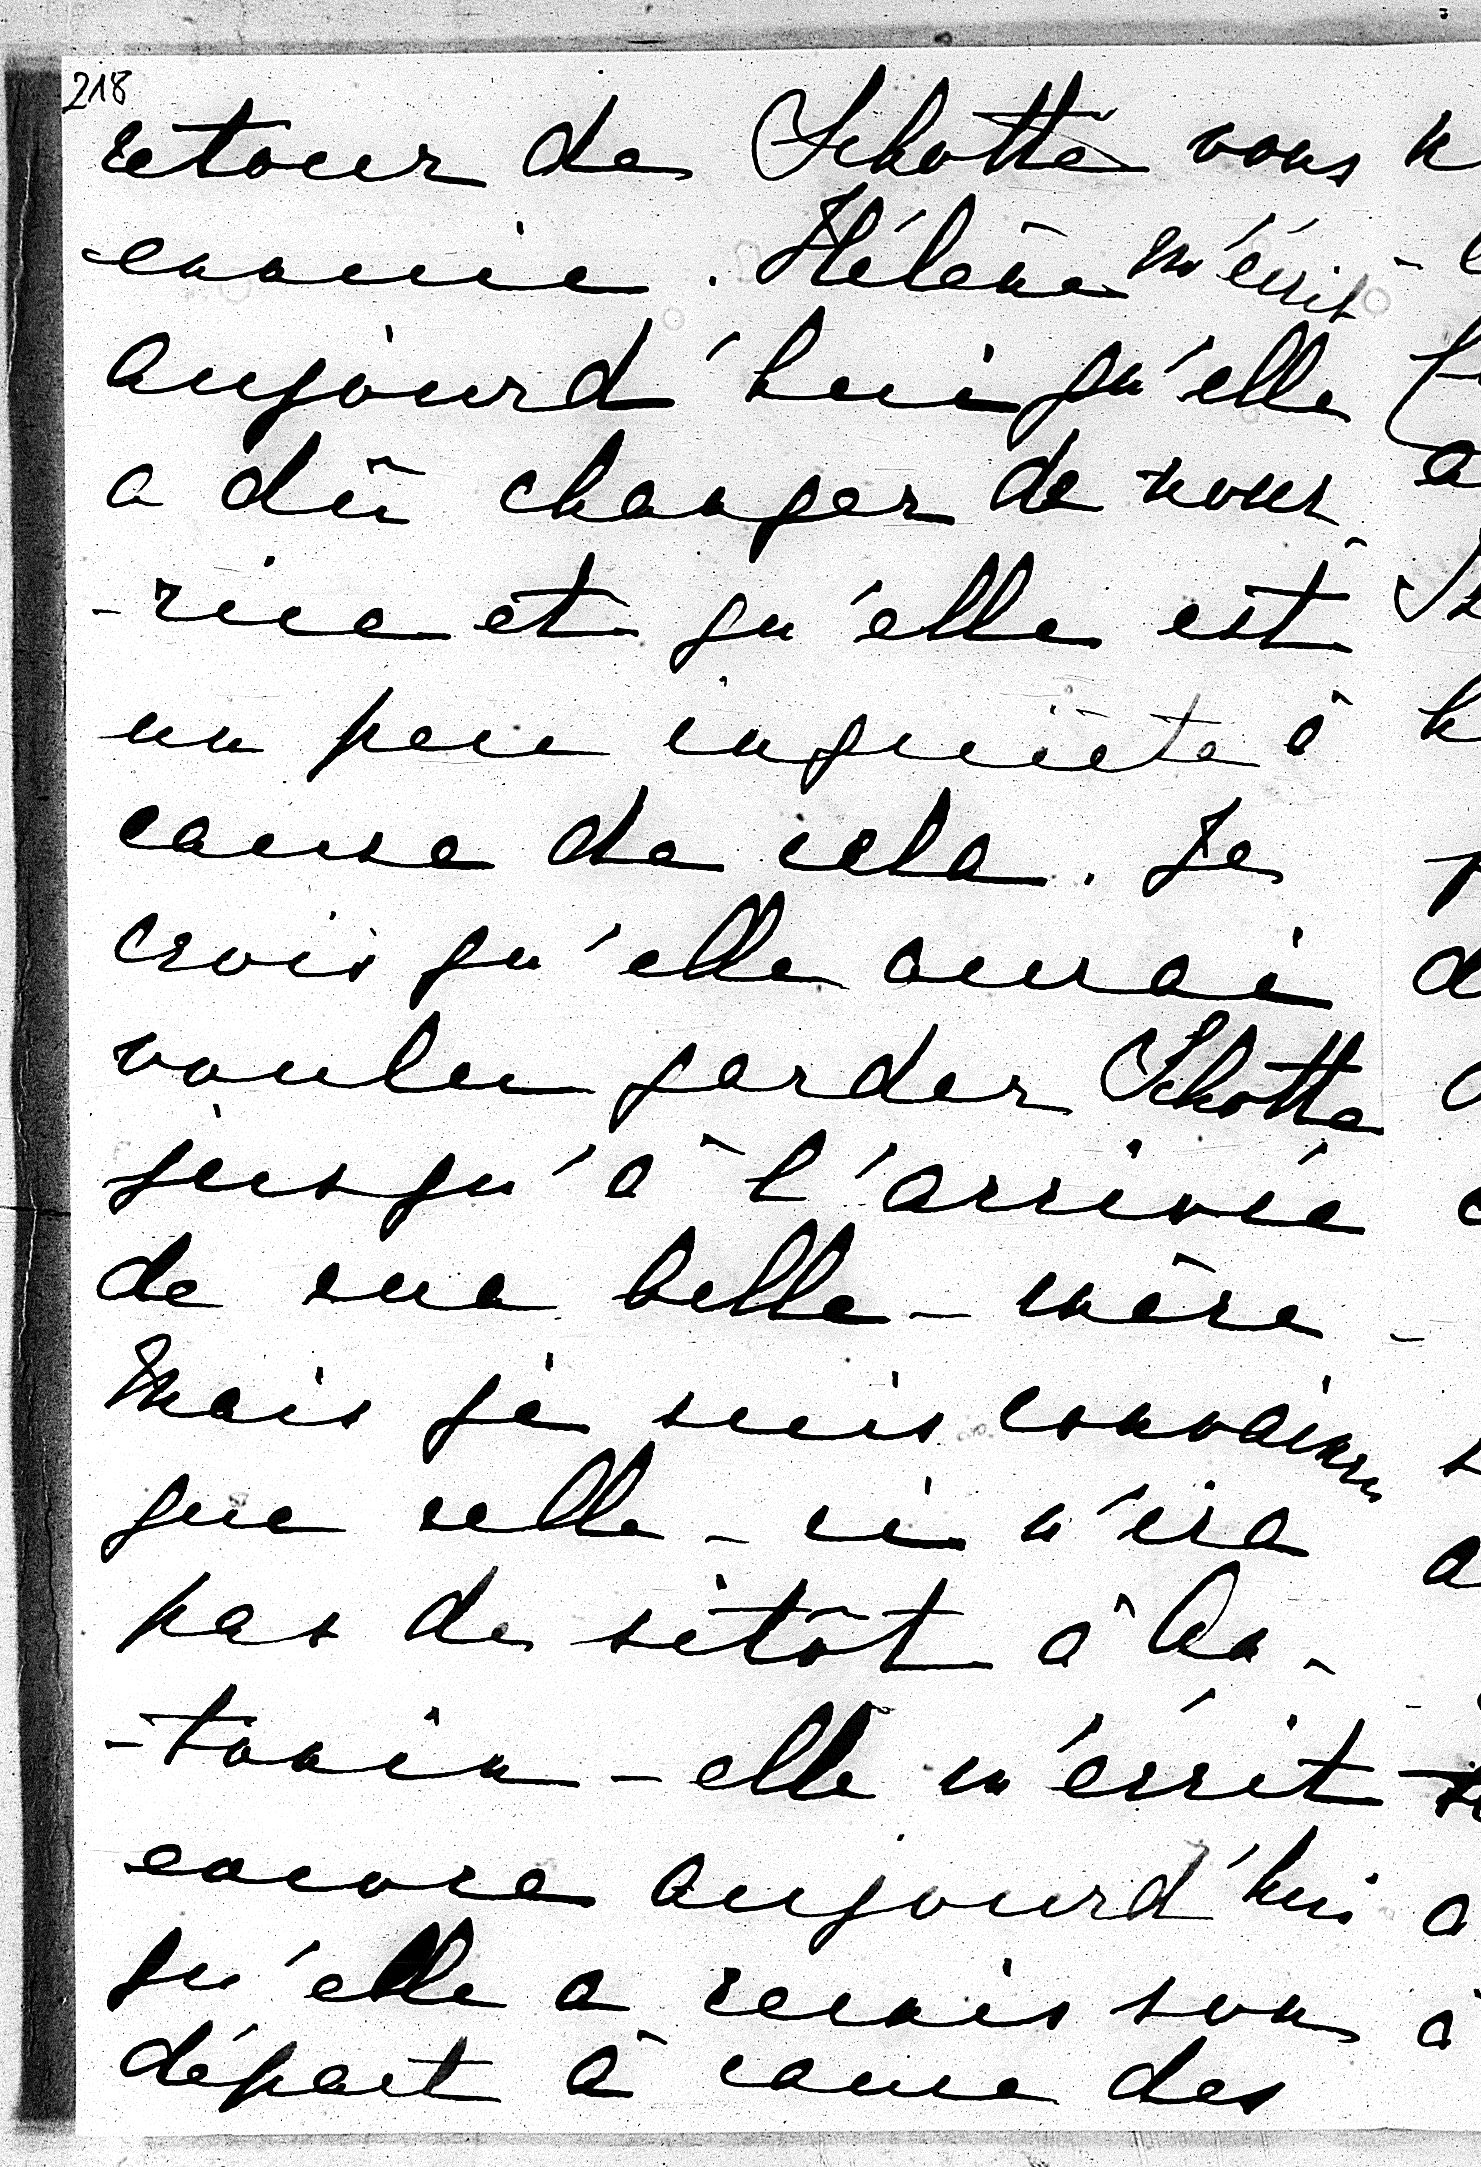 218
retour de Schotte vous
ennuie. Hélène m'écrit
aujourd'hui qu'elle
a dû changer de nour
-rice et qu'elle est
un peu inquiète à
cause de cela. Je
crois qu'elle aurai
voulu garder Schotte
jusqu'à l'arrivée
de sua belle-mère -
Mais je suis convaincu
que celle-ci n'ira
pas de sitôt à Ga-
-tonin - elle m'écrit
encore aujourd'hui
qu'elle a remis son
départ à cause des